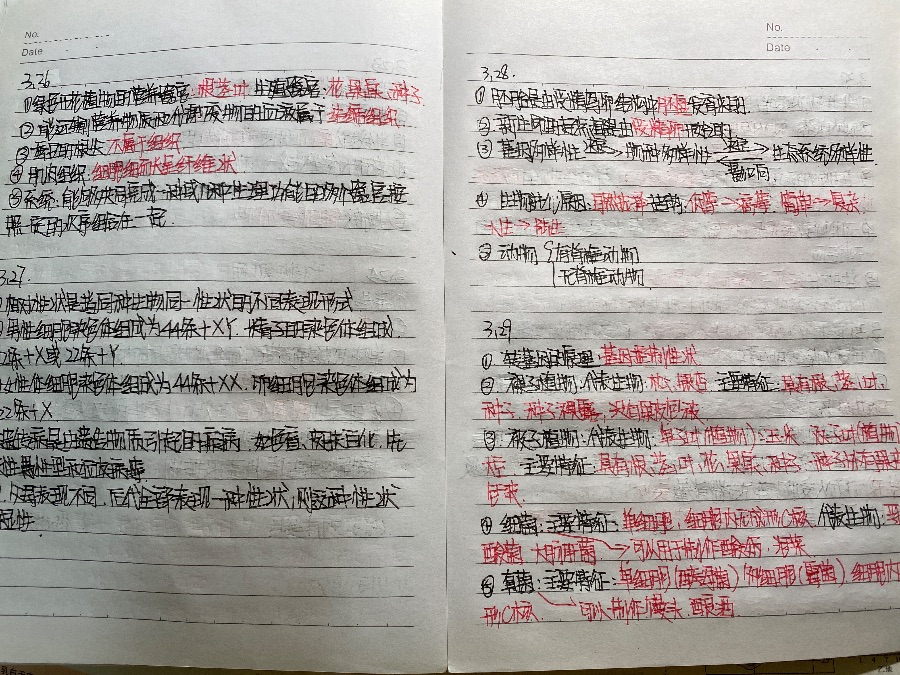 No.
Date
3.26
①绿色开花植物的营养器官：根茎叶 生殖器官：花、果实、种子
②能运输营养物质和代谢废物的血液属于结缔组织
③ 不属于组织
④肌肉组织：细胞细而长呈纤维状
⑤系统：能够共同完成一种或几种生理功能的多个器官按
照一定的次序组合在一起
3.27.
相对性状是指同种生物同一性状的不同表现形式
男性体细胞染色体组成为44条+XY，精子的染色体组成
22条+X或22条+Y
女性体细胞染色体组成为44条+XX，卵细胞染色体组成为
22条+X
遗传病是由遗传物质引起的疾病，如色盲、白化、先
父母表现不同，后代全部表现一种性状，则该种性状
显性
No.
Date
3.28.
①胚胎是由受精卵 胚盘发育来的.
②新生命的 是由受精 开始的.
③基因多样性 决定→ 物种多样性 决定→ 生态系统多样性.
影响
④生物进化原因：自然选择 趋势：低等→高等，简单→复杂，
水生→陆生
⑤动物{有脊椎动物
无脊椎动物
3.29
①转基因的原理：基因控制性状
②裸子植物：代表生物：松、银杏 主要特征：具有根、茎、叶、
种子，种子裸露，没有果皮包被
③被子植物：代表生物：单子叶(植物)：玉米 双子叶(植物
主要特征：具有根、茎、叶、花、果实、种子，种子外有果皮
包被.
④细菌：主要特征：单细胞，细胞内无成形的核. 代表生物：
醋酸菌 大肠杆菌 → 可以用于制作酸奶，泡菜
⑤真菌：主要特征：单细胞(酵母菌) 多细胞(霉菌)，细胞内
形的核. → 可以制作馒头、酿酒